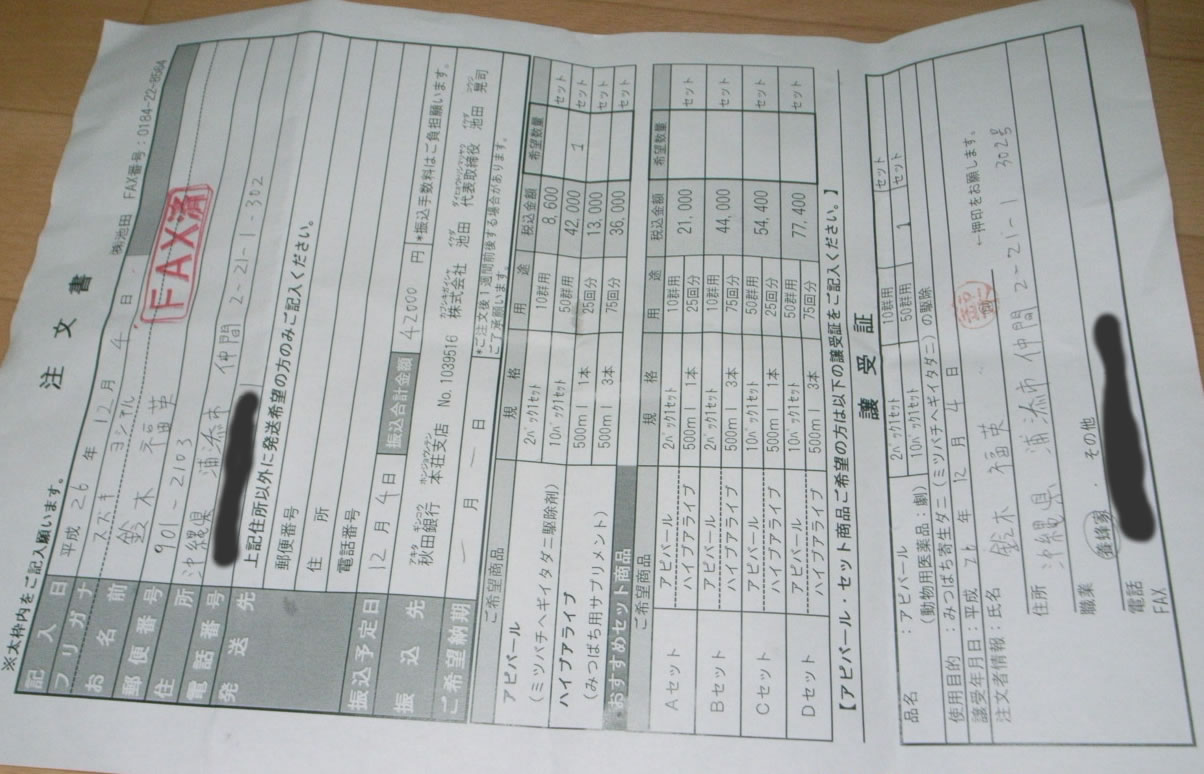 ※太枠内をご記入願います。
注文書
㈱池田 FAX番号：0184-22-8564
FAX済
記入日 平成 26 年 12 月 4 日
フリガナ スズキ
お名前 鈴木 福英
郵便番号 901-2103
住所 沖縄県 浦添市 仲間 2-21-1-302
電話番号
発送先 上記住所以外に発送希望の方のみご記入ください。
郵便番号
住所
電話番号
振込予定日 12 月 4 日 振込合計金額 42000 円 *振込手数料はご負担願います。
振込先 秋田銀行 本荘支店 No.1039516 株式会社 池田 代表取締役 池田 晃司
ご希望納期 月 日 *ご注文後1週間前後する場合があります。
ご了承願います。
ご希望商品 規格 用途 税込金額 希望数量
アピバール 2パック1セット 10群用 8,600 セット
(ミツバチヘギイタダニ駆除剤) 10パック1セット 50群用 42,000 1 セット
ハイブアライブ 500ml 1本 25回分 13,000 セット
(みつばち用サプリメント) 500ml 3本 75回分 36,000 セット
おすすめセット商品
ご希望商品 規格 用途 税込金額 希望数量
Aセット アピバール 2パック1セット 10群用 21,000 セット
ハイブアライブ 500ml 1本 25回分
Bセット アピバール 2パック1セット 10群用 44,000 セット
ハイブアライブ 500ml 3本 75回分
Cセット アピバール 10パック1セット 50群用 54,400 セット
ハイブアライブ 500ml 1本 25回分
Dセット アピバール 10パック1セット 50群用 77,400 セット
ハイブアライブ 500ml 3本 75回分
【アピバール・セット商品ご希望の方は以下の譲受証をご記入ください。】
譲受証
品名：アピバール 2パック1セット 10群用 セット
(動物用医薬品：劇) 10パック1セット 50群用 1 セット
使用目的：みつばち寄生ダニ(ミツバチヘギイタダニ)の駆除
譲受年月日：平成 26 年 12 月 4 日
注文者情報：氏名 鈴木 福英 印 ←押印をお願します。
住所 沖縄県 浦添市 仲間 2-21-1 302号
職業 養蜂家・その他
電話
FAX